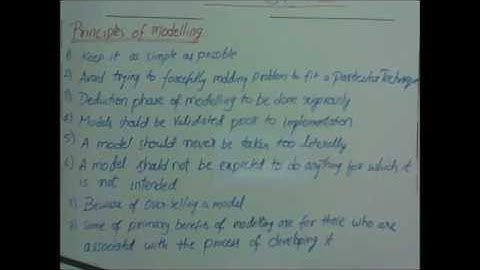 Principles of modelling
1) Keep it as simple as possible
2) Avoid trying to forcefully molding problem to fit a particular Technique
3) Deduction phase of modelling to be done rigorously
4) Models should be validated prior to implementation
5) A model should never be taken too literally
6) A model should not be expected to do anything for which it
is not intended
7) Beware of over selling a model
8) Some of primary benefits of modelling are for those who are
associated with the process of developing it